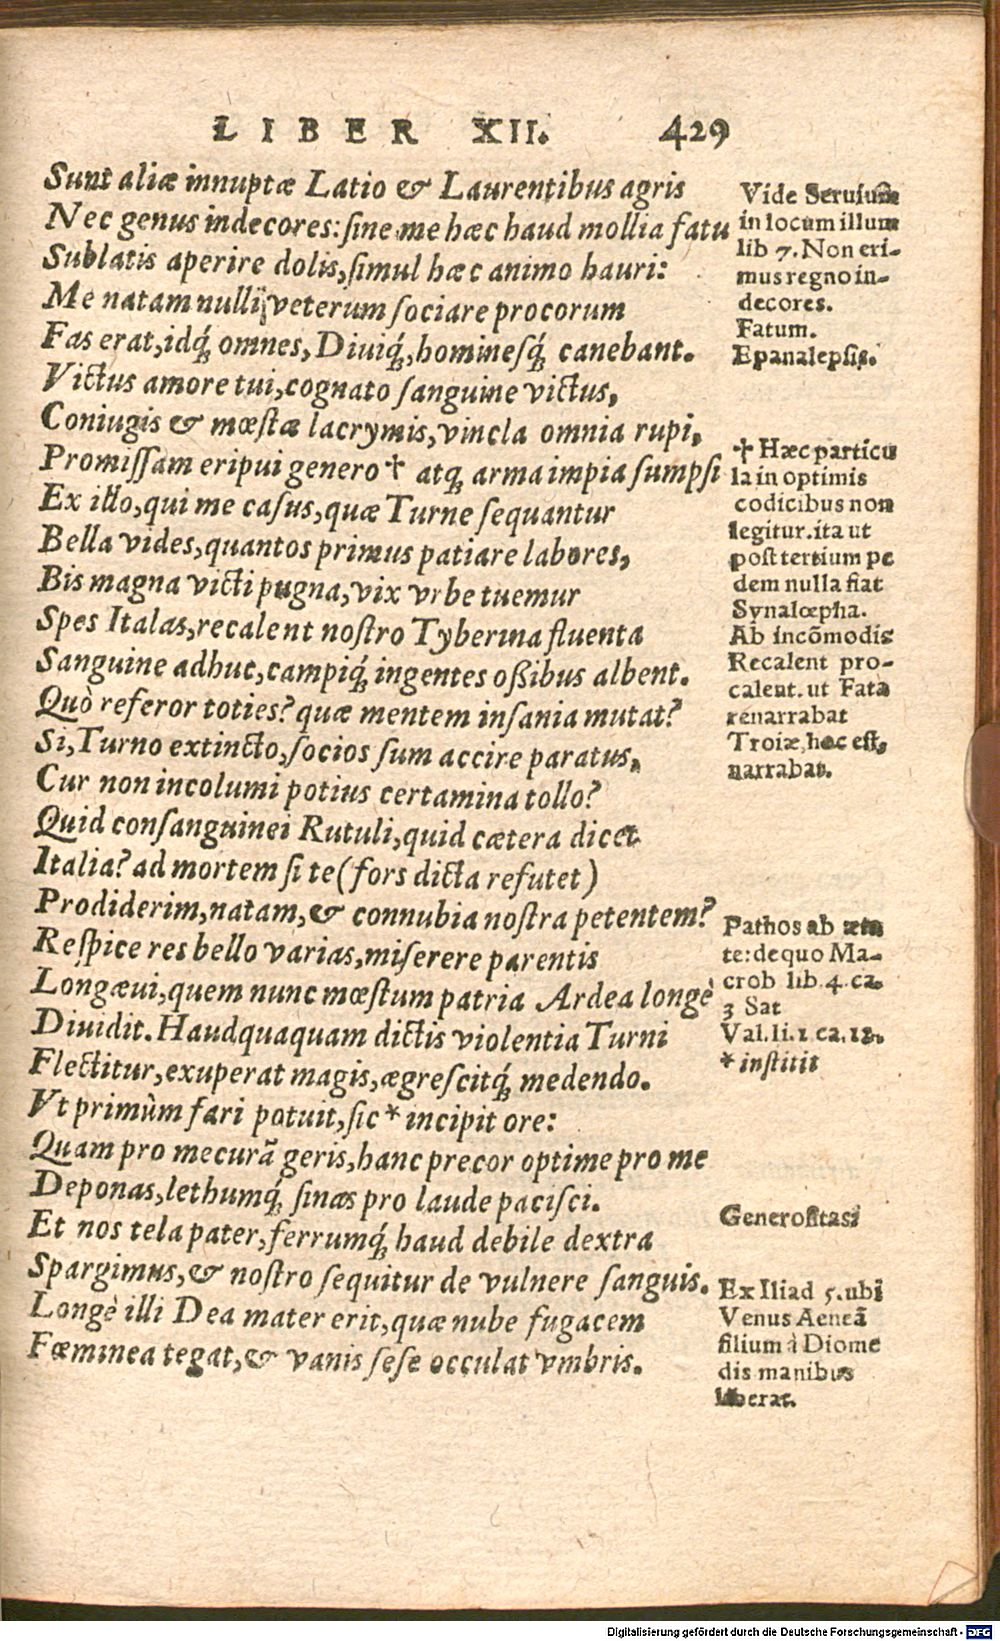 LIBER XII. 429
Sunt aliæ innuptæ Latio & Laurentibus agris
Nec genus indecores: sine me hæc haud mollia fatu
Sublatis aperire dolis, simul hæc animo hauri:
Me natam nulli veterum sociare procorum
Fas erat, idq́; omnes, Diuiq́;, hominesq́; canebant.
Victus amore tui, cognato sanguine victus,
Coniugis & mœstæ lacrymis, vincla omnia rupi,
Promissam eripui genero † atq; arma impia sumpsi
Ex illo, qui me casus, quæ Turne sequantur
Bella vides, quantos primus patiare labores,
Bis magna victi pugna, vix vrbe tuemur
Spes Italas, recalent nostro Tyberina fluenta
Sanguine adhuc, campiq́; ingentes oßibus albent.
Quò referor toties? quæ mentem insania mutat?
Si, Turno extincto, socios sum accire paratus,
Cur non incolumi potius certamina tollo?
Quid consanguinei Rutuli, quid cætera dicet
Italia? ad mortem si te (fors dicta refutet)
Prodiderim, natam, & connubia nostra petentem?
Respice res bello varias, miserere parentis
Longæui, quem nunc mœstum patria Ardea longè
Diuidit. Haudquaquam dictis violentia Turni
Flectitur, exuperat magis, ægrescitq́; medendo.
Vt primùm fari potuit, sic * incipit ore:
Quam pro me curã geris, hanc precor optime pro me
Deponas, lethumq́; sinas pro laude pacisci.
Et nos tela pater, ferrumq́; haud debile dextra
Spargimus, & nostro sequitur de vulnere sanguis.
Longè illi Dea mater erit, quæ nube fugacem
Fœminea tegat, & vanis sese occulat vmbris.
Vide Seruium
in locum illum
lib 7. Non eri-
mus regno in-
decores.
Fatum.
Epanalepsis.
† Hæc particu
la in optimis
codicibus non
legitur. ita ut
post tertium pe
dem nulla fiat
Synalœpha.
Ab incõmodis
Recalent pro-
calent. ut Fata
renarrabat
Troiæ, hoc est,
narrabat.
Pathos ab æta
te: de quo Ma-
crob lib. 4. ca.
3 Sat
Val. li. 1. ca. 12.
* institit
Generositas
Ex Iliad 5. ubi
Venus Aeneã
filium à Diome
dis manibus
liberat.
Digitalisierung gefördert durch die Deutsche Forschungsgemeinschaft - DFG